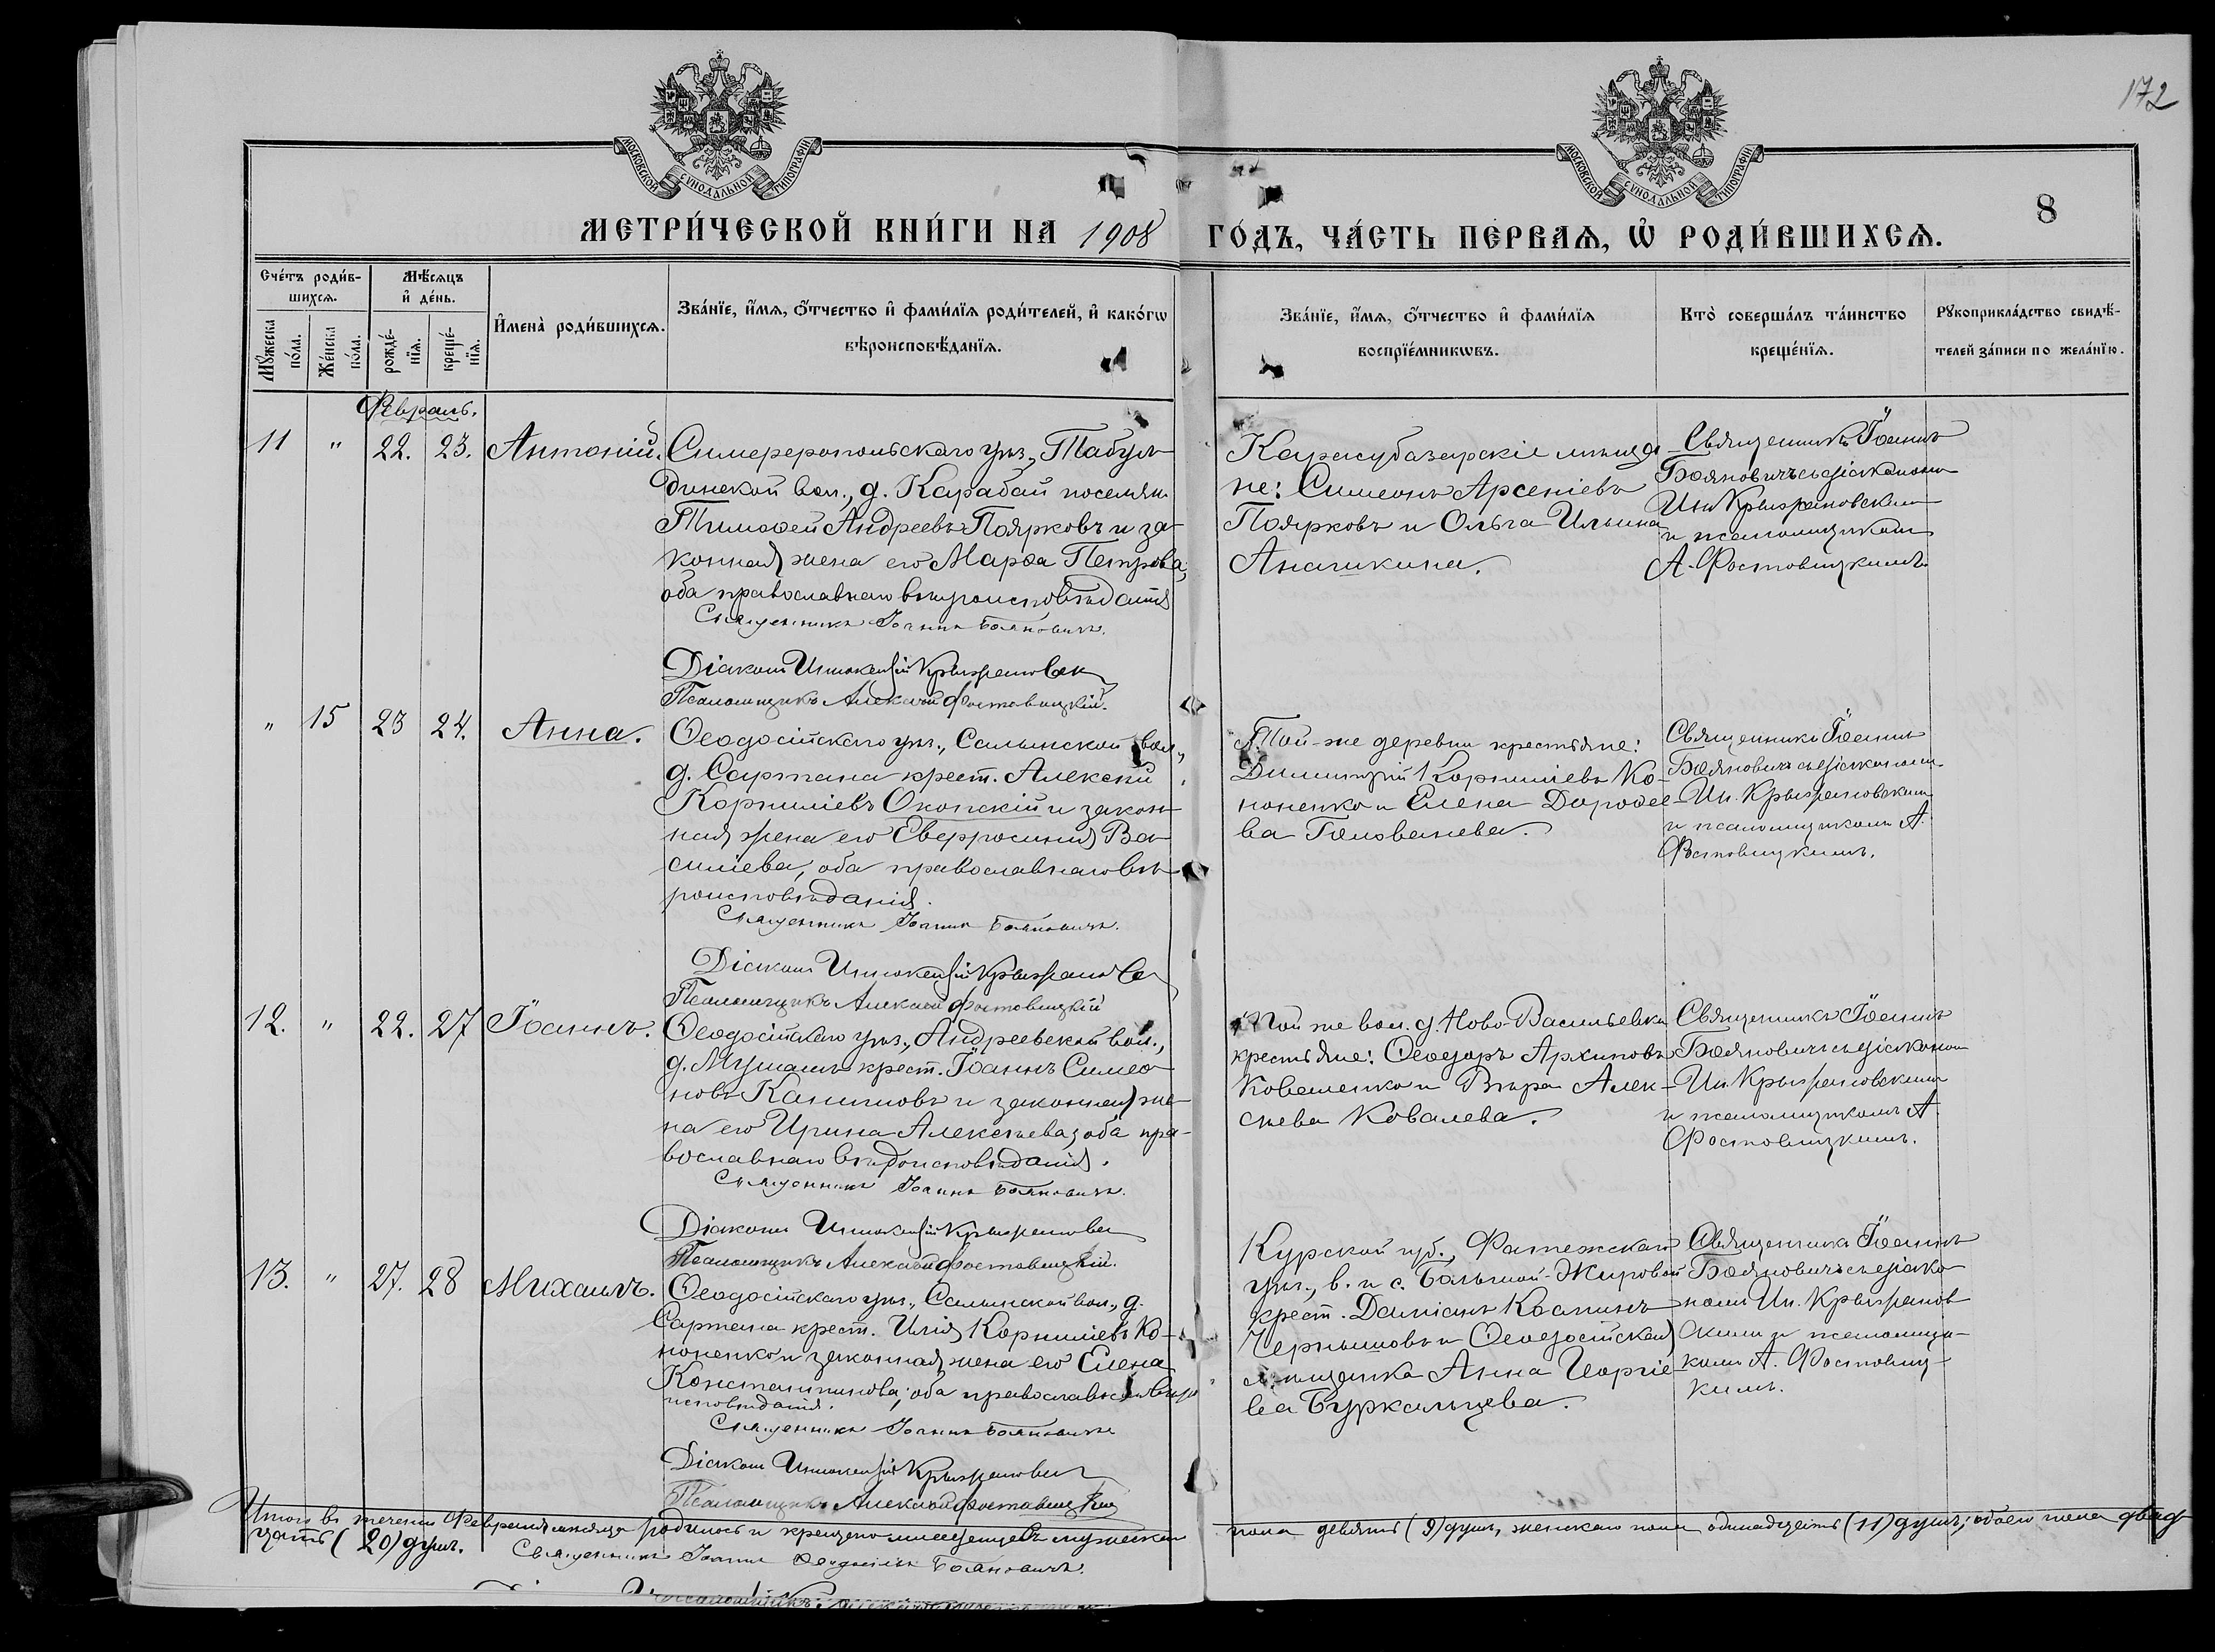 172
МОСКОВСКОЙ СѴНОДАЛЬНОЙ ТИПОГРАФІИ
МОСКОВСКОЙ СѴНОДАЛЬНОЙ ТИПОГРАФІИ
8
МЕТРИ́ЧЕСКОЙ КНИ́ГИ НА 1908 ГО́ДЪ, ЧА́СТЬ ПЕ́РВАѦ, Ѡ҆ РОДИ́ВШИХСѦ.
Сче́тъ роди́в-
шихсѧ.
Мꙋ́жеска
по́ла.
Же́нска
по́ла.
Мѣ́сѧцъ
и҆ де́нь.
рожде́-
нїѧ.
креще́-
нїѧ.
И҆мена̀ роди́вшихсѧ.
Зва́нїе, и҆́мѧ, ѻ҆́тчество и҆ фами́лїѧ роди́телей, и҆ како́гѡ
вѣроисповѣ́данїѧ.
Зва́нїе, и҆́мѧ, ѻ҆́тчество и҆ фами́лїѧ
воспрїе́мникѡвъ.
Кто̀ соверша́лъ та́инство
креще́нїѧ.
Рꙋкоприкла́дство свидѣ́-
телей за́писи по жела́нїю.
Февраль.
11 " 22. 23. Антоній.
Симферопольскаго уѣз., Табул-
динской вол., д. Карабай поселян.
Тимоѳей Андреевъ Поярковъ и за-
конная жена его Марѳа Петрова,
оба православнаго вѣроисповѣданія
Священникъ Іоаннъ Бояновичъ.
Діаконъ Иннокентій
Псаломщикъ Алексій Фостовицкій.
Карасубазарскіе мѣща-
не: Симеонъ Арсеніевъ
Поярковъ и Ольга Ильина
Аначкина.
Священникъ Іоаннъ
Бояновичъ съ діакономъ
Ин. Крыжановскимъ
и псаломщикомъ
А. Фостовицкимъ.
" 15 23 24. Анна.
Ѳеодосійскаго уѣз., Салынской вол.,
д. Сартана крест. Алексій
Корниліевъ Окопскій и закон-
ная жена его Евфросинія Ва-
силіева, оба православнаго вѣ-
роисповѣданія.
Священникъ Іоаннъ Бояновичъ.
Діаконъ Иннокентій
Псаломщикъ Алексій Фостовицкій
Той-же деревни крестьяне:
Димитрій Корниліевъ Ко-
ноненко и Елена Дороѳее-
ва Голованева.
Священникъ Іоаннъ
Бояновичъ съ діакономъ
Ин. Крыжановскимъ
и псаломщикомъ А.
Фостовицкимъ.
12. " 22. 27 Іоаннъ.
Ѳеодосійскаго уѣз., Андреевской вол.,
д. крест. Іоаннъ Симео-
новъ и законная же-
на его Ирина Алексѣева, оба пра-
вославнаго вѣроисповѣданія.
Священникъ Іоаннъ Бояновичъ.
Діаконъ Иннокентій
Псаломщикъ Алексій Фостовицкій.
Той же вол. д. Ново-Васильевки
крестьяне: Ѳеодоръ Архиповъ
Коваленко и Вѣра Алек-
сѣева Ковалева.
Священникъ Іоаннъ
Бояновичъ съ діакономъ
Ин. Крыжановскимъ
и псаломщикомъ А.
Фостовицкимъ.
13. " 27. 28 Михаилъ.
Ѳеодосійскаго уѣз., Салынской вол., д.
Сартана крест. Илія Корниліевъ Ко-
ноненко и законная жена его Елена
Константинова, оба православнаго вѣро
исповѣданія.
Священникъ Іоаннъ Бояновичъ
Діаконъ Иннокентій
Псаломщикъ Алексій Фостовицкій
Курской губ., Фатежскаго
уѣз., в. и с. Большой-Жировой
крест. Даміанъ Косминъ
Чернышовъ и Ѳеодосійская
мѣщанка Анна Георгіе-
ва Буркальцева.
Священникъ Іоаннъ
Бояновичъ съ діако-
номъ Ин. Крыжанов-
скимъ и псаломщи-
комъ А. Фостовиц-
кимъ.
Итого въ теченіи Февраля мѣсяца родилось и крещено младенцевъ мужеска пола девять (9) душъ, женскаго пола одинадцать (11) душъ; обоего пола двад-
цать (20) душъ.
Священникъ Іоаннъ Бояновичъ.